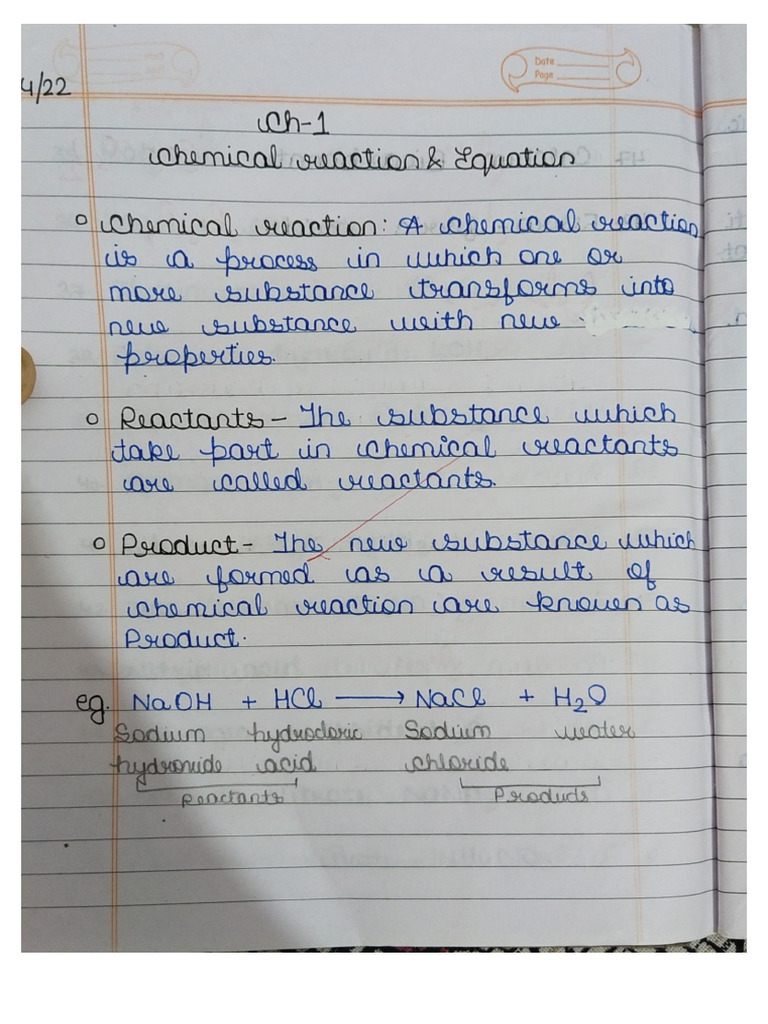 Date
Page
4/22
Ch-1
Chemical reaction & Equation
o Chemical reaction: A chemical reaction
is a process in which one or
more substance transforms into
new substance with new
properties.
o Reactants - The substance which
take part in chemical reactants
are called reactants.
o Product - The new substance which
are formed as a result of
chemical reaction are known as
Product.
eg. NaOH + HCl ⟶ NaCl + H₂O
Sodium hydrocloric Sodium water
hydroxide acid chloride
Reactants Products